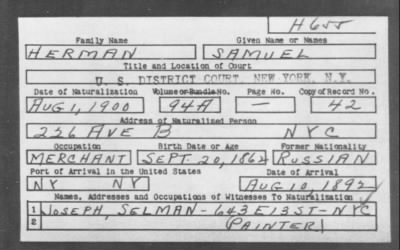 H655
Family Name Given Name or Names
HERMAN SAMUEL
Title and Location of Court
U. S. DISTRICT COURT, NEW YORK, N.Y.
Date of Naturalization Volume or Bundle No. Page No. Copy of Record No.
AUG 1, 1900 94A — 42
Address of Naturalized Person
226 AVE B NYC
Occupation Birth Date or Age Former Nationality
MERCHANT SEPT. 20, 1862 RUSSIAN
Port of Arrival in the United States Date of Arrival
NY NY AUG 10, 1892
Names, Addresses and Occupations of Witnesses To Naturalization
1 JOSEPH, SELMAN - 643 E 13 ST - NYC
2 PAINTER